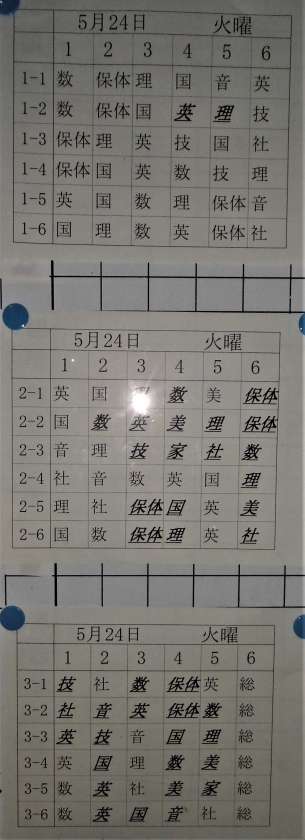 5月24日 火曜
1 2 3 4 5 6
1-1 数 保体 理 国 音 英
1-2 数 保体 国 英 理 技
1-3 保体 理 英 技 国 社
1-4 保体 国 英 数 技 理
1-5 英 国 数 理 保体 音
1-6 国 理 数 英 保体 社
5月24日 火曜
1 2 3 4 5 6
2-1 英 国 数 美 保体
2-2 国 数 英 美 理 保体
2-3 音 理 技 家 社 数
2-4 社 音 数 英 国 理
2-5 理 社 保体 国 英 美
2-6 国 数 保体 理 英 社
5月24日 火曜
1 2 3 4 5 6
3-1 技 社 数 保体 英 総
3-2 社 音 英 保体 数 総
3-3 英 技 音 国 理 総
3-4 英 国 理 数 美 総
3-5 数 英 社 美 家 総
3-6 数 英 国 音 社 総